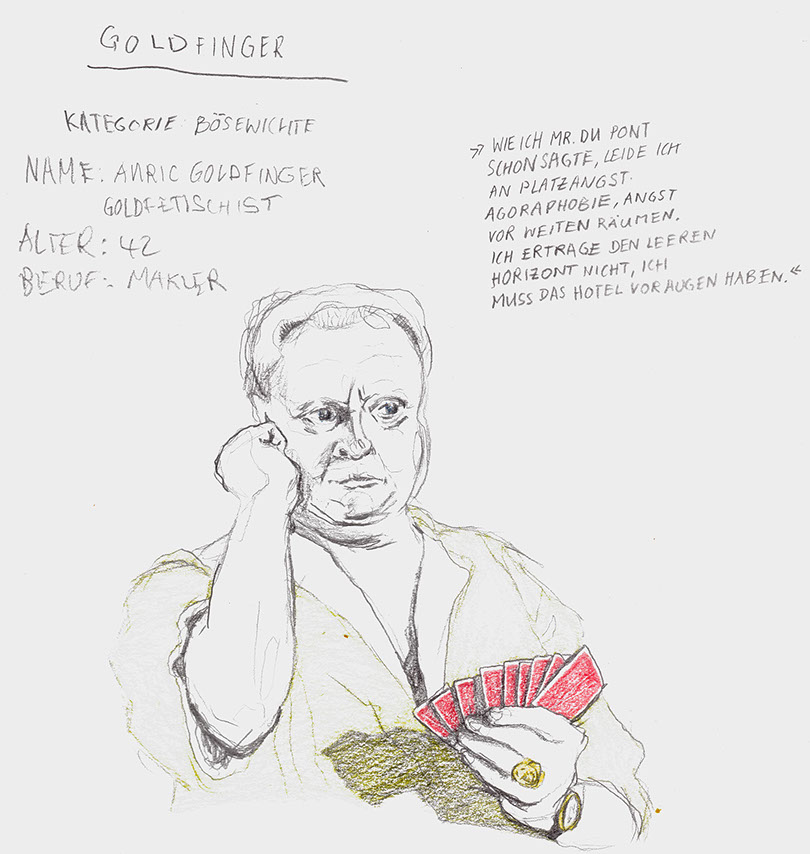 GOLDFINGER
KATEGORIE: BÖSEWICHTE
NAME: AURIC GOLDFINGER
GOLDFETISCHIST
ALTER: 42
BERUF: MAKLER
»WIE ICH MR. DU PONT
SCHON SAGTE, LEIDE ICH
AN PLATZANGST.
AGORAPHOBIE, ANGST
VOR WEITEN RÄUMEN.
ICH ERTRAGE DEN LEEREN
HORIZONT NICHT, ICH
MUSS DAS HOTEL VOR AUGEN HABEN.«